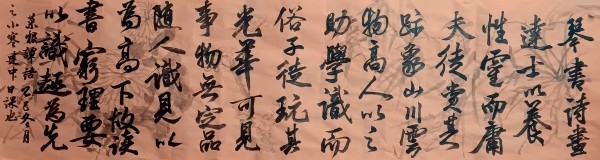 琴書詩畫
達士以養
性靈而庸
夫徒賞其
跡象山川雲
物高人以之
助學識而
俗子徒玩其
光華可見
事物無定品
随人識見以
為高下故讀
書窮理要
以識趣為先
菜根譚語乙巳冬月
之小寒建中日課也